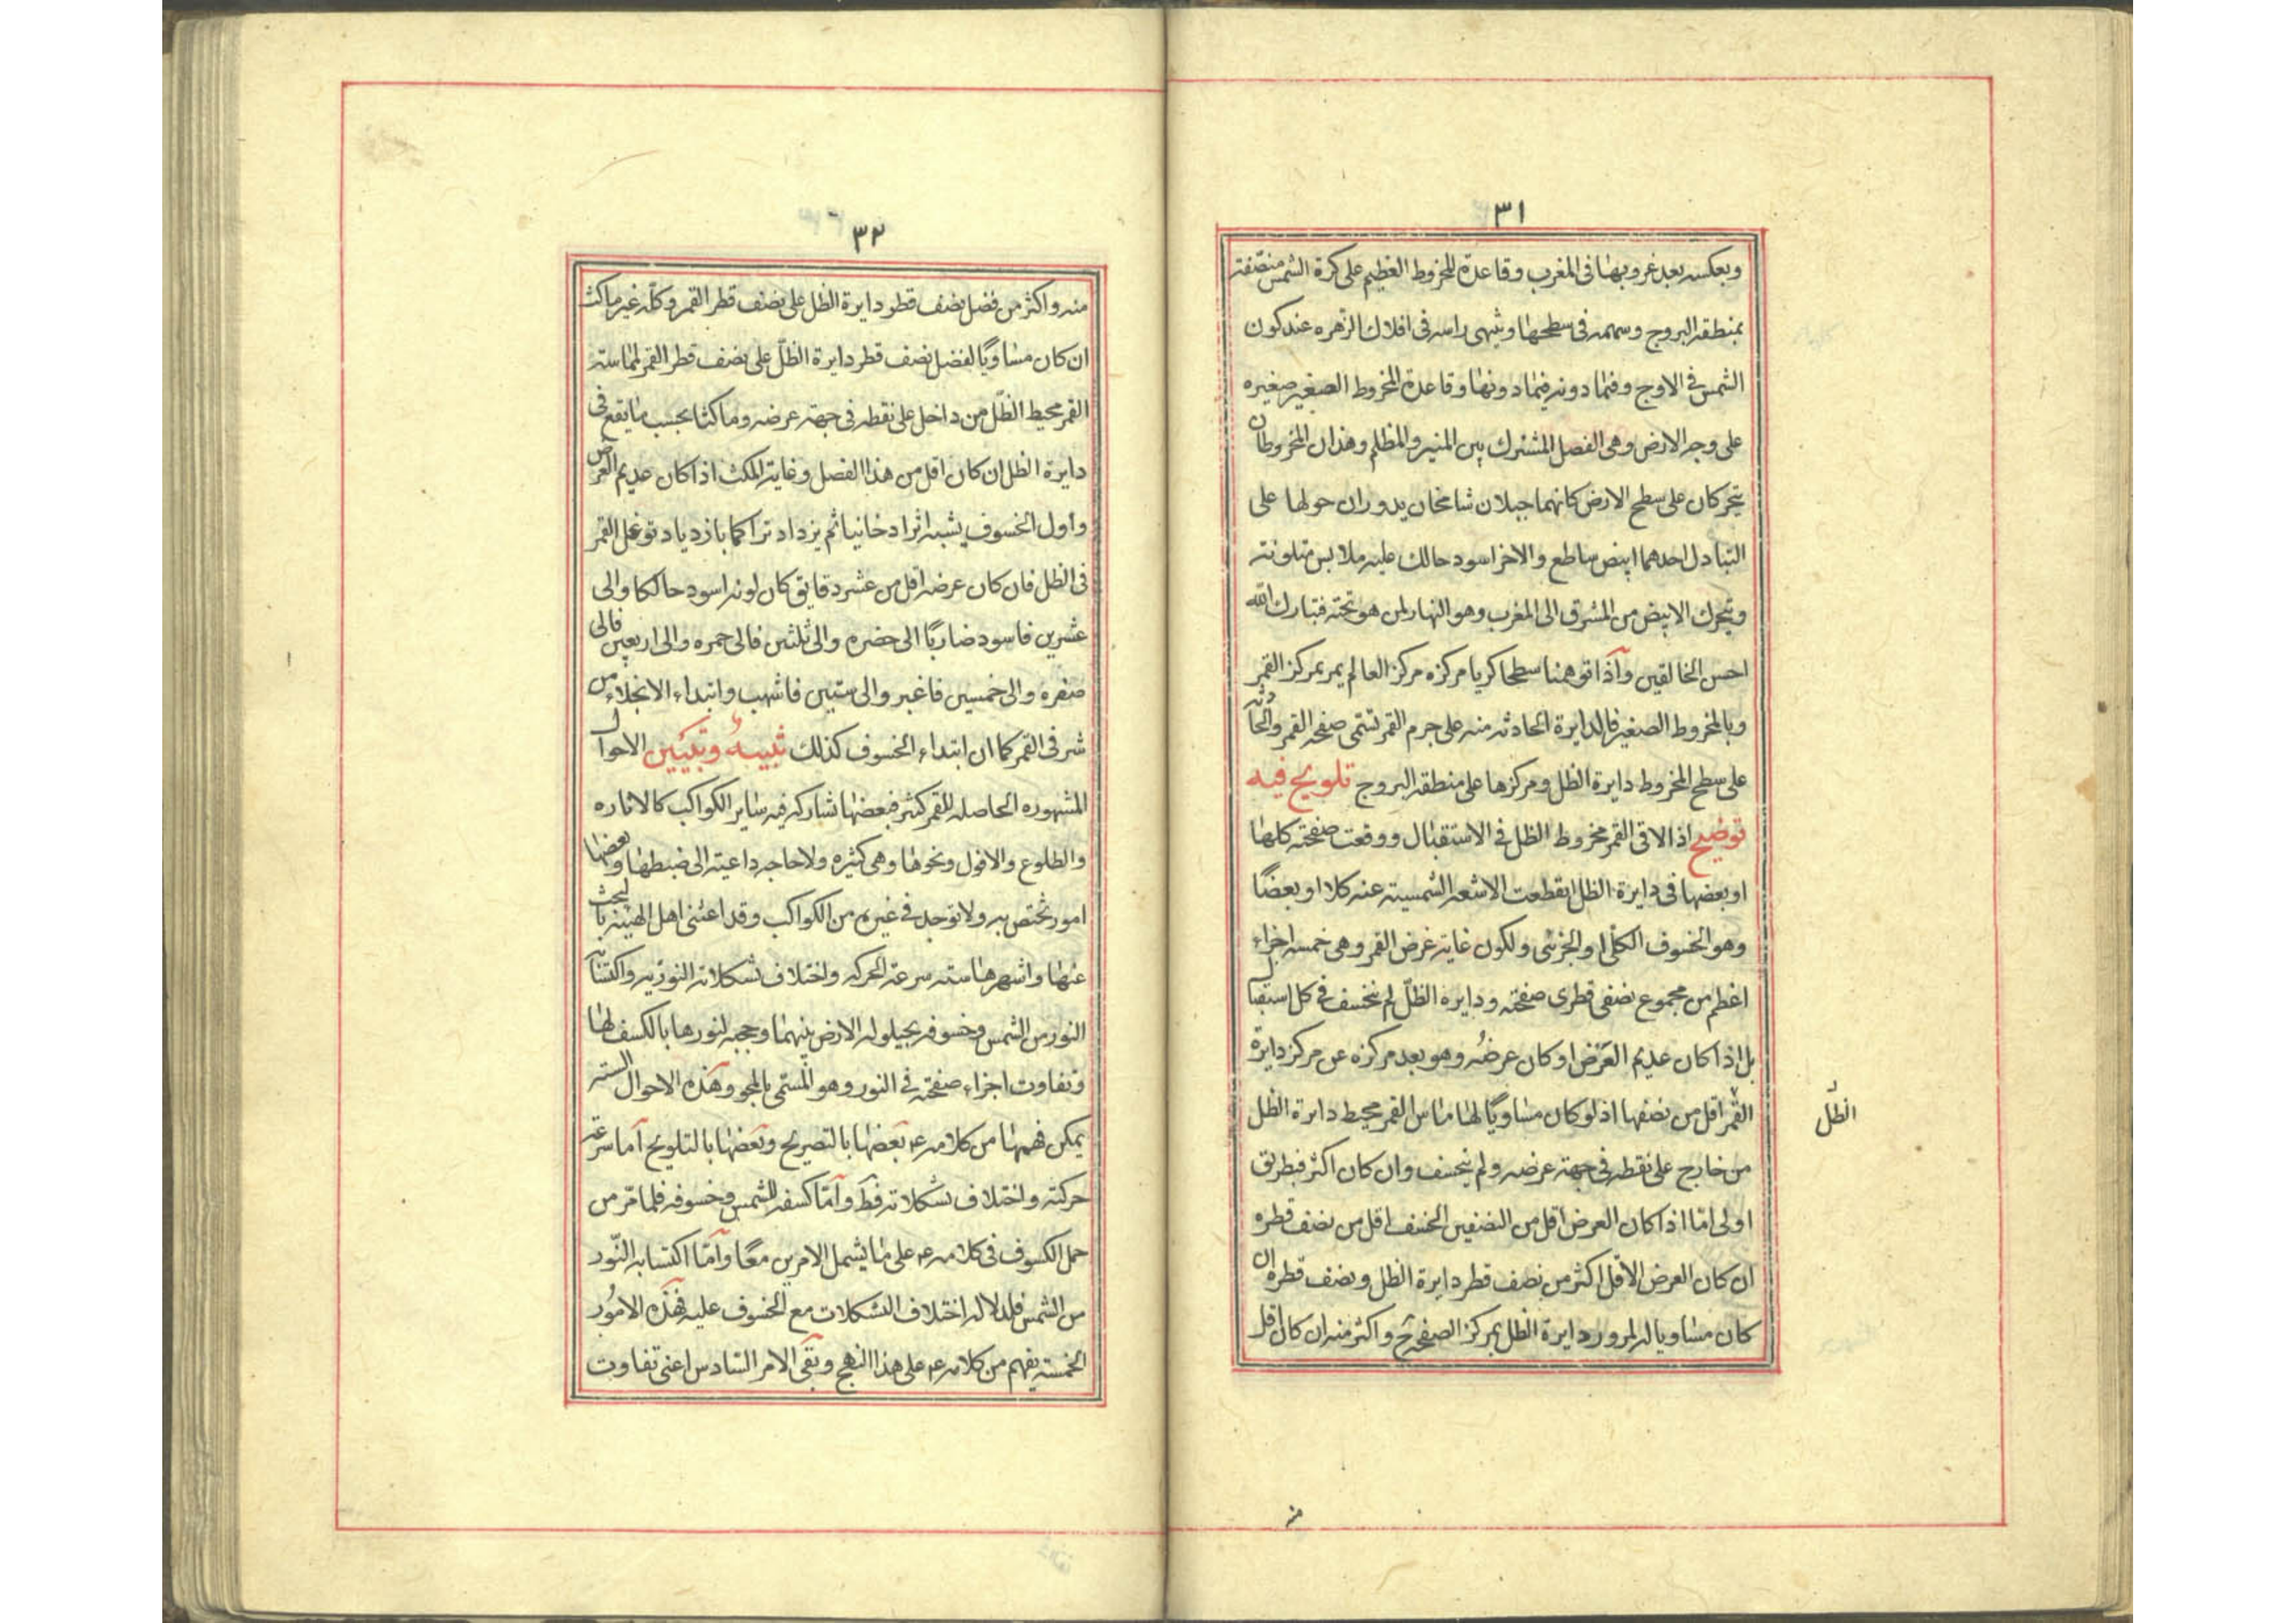 ٣١
وبعكسه بعد غروبها فى المغرب وقاعدة المخروط العظيم على كرة الشمس منصّفته
بمنطقة البروج وسهمه فى سطحها وينتهى راسه فى افلاك الزهره عند كون
الشمس فى الاوج وفيما دونه فيما دونها وقاعدة المخروط الصغير صغيره
على وجه الارض وهى الفصل المشترك بين المنير والمظلم وهذان المخروطان
يتحركان على سطح الارض كانهما جبلان شامخان يدوران حولها على
التبادل احدهما ابيض ساطع والاخر اسود حالك عليه ملابس متلونة
ويتحرك الابيض من المشرق الى المغرب وهو النهار لمن هو تحته فتبارك الله
احسن الخالقين وآذا توهمنا سطحا كريا مركزه مركز العالم يمر بمركز القمر
وبالمخروط الصغير فالدايرة الحادثه منه على جرم القمر تسمى صفحة القمر والحادثه
على سطح المخروط دايرة الظل ومركزها على منطقة البروج تلويح فيه
توضيح اذا لاقى القمر مخروط الظل فى الاستقبال ووقعت صفحته كلها
او بعضها فى دايرة الظل انقطعت الاشعه الشمسية عنه كلا او بعضًا
وهو الخسوف الكلّى او الجزئى ولكون غاية عرض القمر وهى خمسه اجزاء
اعظم من مجموع نصفى قطرى صفحته ودايره الظلّ لم ينخسف فى كل استقبال
بل اذا كان عديم العَرض او كان عرضُه وهو بعد مركزه عن مركز دايرة
القمر اقل من نصفها اذ لو كان مساويًا لها ماس القمر محيط دايرة الظل
الظّل
من خارج على نقطه فى جهة عرضه ولم ينخسف وان كان اكثر فبطريق
اولى امّا اذا كان العرض اقل من النصفين انخسف اقل من نصف قطره
ان كان العرض الاقل اكثر من نصف قطر دايرة الظل ونصف قطره ان
كان مساويا له لمرور دايرة الظل بمركز الصفحة ح واكثر منه ان كان اقل
منه
٣٢
منه واكثر من فضل نصف قطر دايرة الظل على نصف قطر القمر وكلّه غير ماكث
ان كان مساويًا لفضل نصف قطر دايرة الظلّ على نصف قطر القمر لمماسته
القمر محيط الظّل من داخل على نقطه فى جهة عرضه وماكثا بحسب ما يقع فى
دايرة الظل ان كان اقل من هذا الفضل وغاية المكث اذا كان عديم العرض
وأول الخسوف يشبه اثرا دخانيا ثم يزداد تراكما بازدياد توغل القمر
فى الظل فان كان عرضه اقل من عشر دقايق كان لونه اسود حالكا والى
عشرين فاسود ضاربًا الى خضره والى ثلثين فالى حمره والى اربعين فالى
صفره والى خمسين فاغبر والى ستين فاشهب وابتداء الانجلاء من
شرقى القمر كما ان ابتداء الخسوف كذلك تنبيهٌ وتبيين الاحوال
المشهوره الحاصله للقمر كثير فبعضها تشاركه فيه ساير الكواكب كالاناره
والطلوع والافول ونحوها وهى كثيره ولا حاجه داعية الى ضبطها وبعضها
امور تختص به ولا توجد فى غيره من الكواكب وقد اعتنى اهل الهيئة بالبحث
عنها واشهرها سته سرعة الحركه واختلاف تشكلاته النوريه واكتسابه
النور من الشمس وخسوفه بحيلوله الارض بينهما وحجبه لنورها بالكسف لها
وتفاوت اجزاء صفحته فى النور وهو المسمى بالمحو وهَذه الاحوال السته
يمكن فهمها من كلامه ع بعضها بالتصريح وبَعضها بالتلويح آما سرعة
حركته واختلاف تشكلاته فظَ وآمّا كسفه للشمس وخسوفه فلما مّر من
حمل الكسوف فى كلامه ع على ما يشمل الامرين معًا وآمّا اكتسابه النّور
من الشمس فلدلاله اختلاف التشكلات مع الخسوف عليه فهَذه الامُور
الخمسة يفهم من كلامه ع على هذا النهج وبقى الامر السّادس اعنى تفاوت